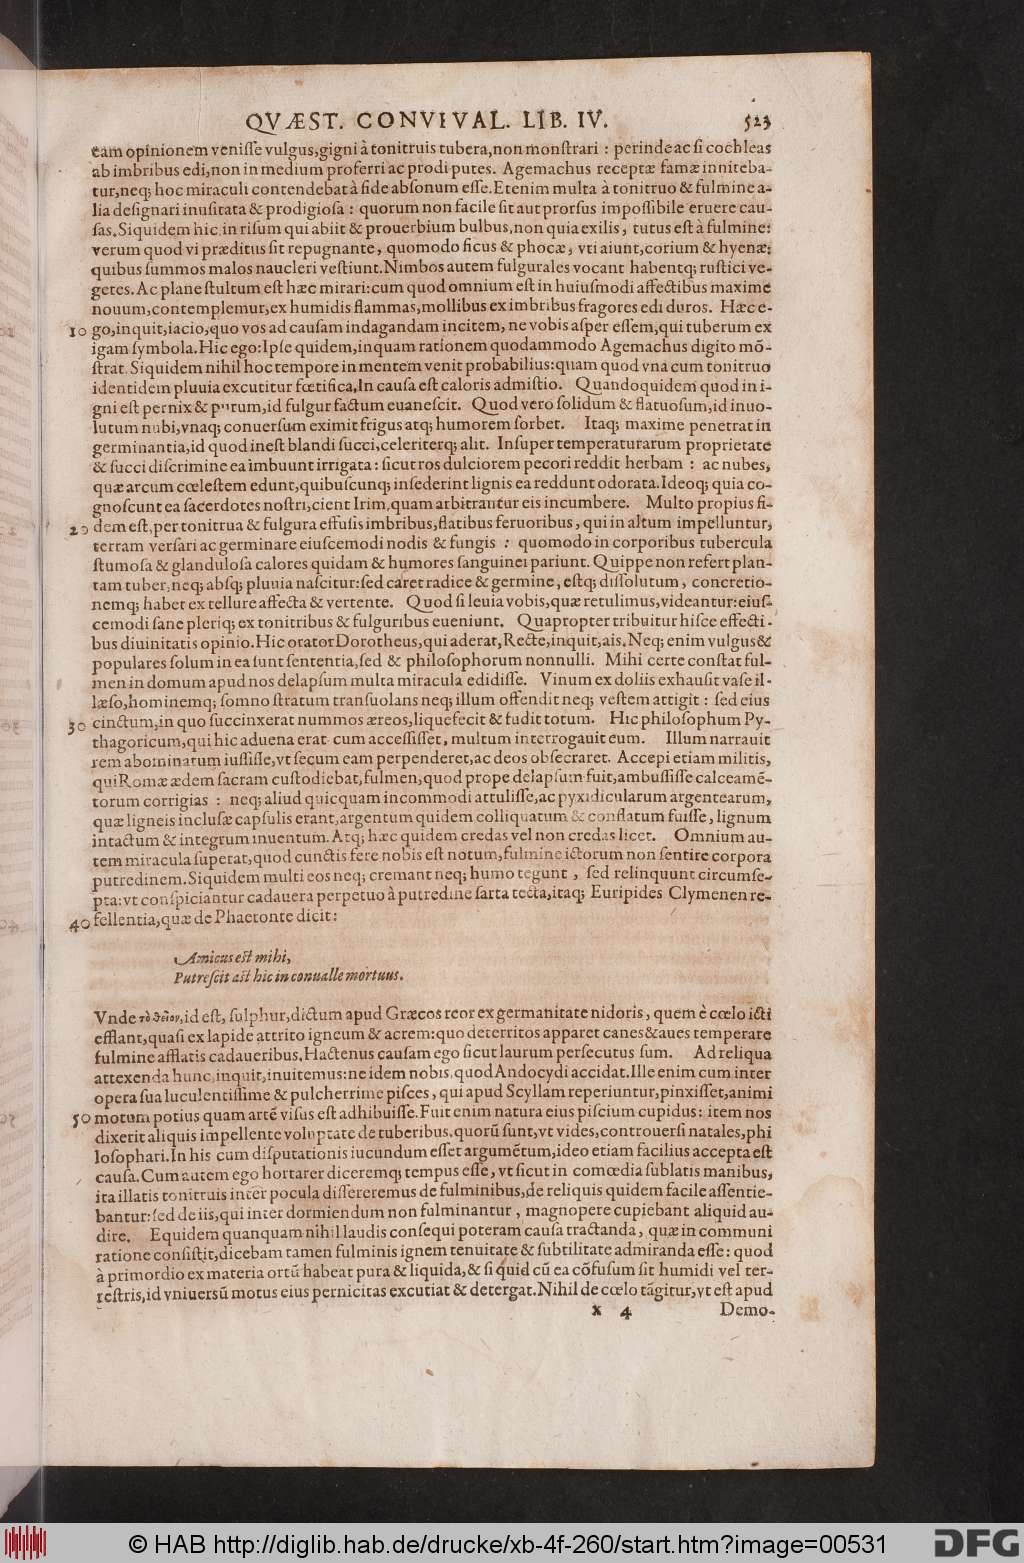 QVÆST. CONVIVAL. LIB. IV. 523
eam opinionem venisse vulgus,gigni à tonitruis tubera,non monstrari : perinde ac si cochleas
ab imbribus edi,non in medium proferri ac prodi putes. Agemachus receptæ famæ inniteba-
tur,neq; hoc miraculi contendebat à fide absonum esse.Etenim multa à tonitruo & fulmine a-
lia designari inusitata & prodigiosa : quorum non facile sit aut prorsus impossibile eruere cau-
sas.Siquidem hic in risum qui abiit & prouerbium bulbus,non quia exilis, tutus est à fulmine:
verum quod vi præditus sit repugnante, quomodo ficus & phocæ, vti aiunt,corium & hyenæ:
quibus summos malos naucleri vestiunt.Nimbos autem fulgurales vocant habentq; rustici ve-
getes.Ac plane stultum est hæc mirari:cum quod omnium est in huiusmodi affectibus maxime
nouum,contemplemur,ex humidis flammas,mollibus ex imbribus fragores edi duros. Hæc e-
10 go,inquit,iacio,quo vos ad causam indagandam incitem, ne vobis asper essem,qui tuberum ex
igam symbola.Hic ego:Ipse quidem,inquam rationem quodammodo Agemachus digito mõ-
strat.Siquidem nihil hoc tempore in mentem venit probabilius:quam quod vna cum tonitruo
identidem pluuia excutitur fœtifica.In causa est caloris admistio. Quandoquidem quod in i-
gni est pernix & purum,id fulgur factum euanescit. Quod vero solidum & flatuosum,id inuo-
lutum nubi,vnaq; conuersum eximit frigus atq; humorem sorbet. Itaq; maxime penetrat in
germinantia,id quod inest blandi succi,celeriterq; alit. Insuper temperaturarum proprietate
& succi discrimine ea imbuunt irrigata : sicut ros dulciorem pecori reddit herbam : ac nubes,
quæ arcum cœlestem edunt,quibuscunq; insederint lignis ea reddunt odorata.Ideoq; quia co-
gnoscunt ea sacerdotes nostri,cient Irim,quam arbitrantur eis incumbere. Multo propius fi-
20 dem est,per tonitrua & fulgura effusis imbribus,flatibus feruoribus, qui in altum impelluntur,
terram versari ac germinare eiuscemodi nodis & fungis : quomodo in corporibus tubercula
stumosa & glandulosa calores quidam & humores sanguinei pariunt. Quippe non refert plan-
tam tuber,neq; absq; pluuia nascitur:sed caret radice & germine, estq; dissolutum, concretio-
nemq; habet ex tellure affecta & vertente. Quod si leuia vobis,quæ retulimus,videantur:eius-
cemodi sane pleriq; ex tonitribus & fulguribus eueniunt. Quapropter tribuitur hisce effecti-
bus diuinitatis opinio.Hic orator Dorotheus,qui aderat,Recte,inquit,ais.Neq; enim vulgus &
populares solum in ea sunt sententia,sed & philosophorum nonnulli. Mihi certe constat ful-
men in domum apud nos delapsum multa miracula edidisse. Vinum ex doliis exhausit vase il-
læso,hominemq; somno stratum transuolans neq; illum offendit neq; vestem attigit : sed eius
30 cinctum,in quo succinxerat nummos æreos,liquefecit & fudit totum. Hic philosophum Py-
thagoricum,qui hic aduena erat cum accessisset, multum interrogauit eum. Illum narrauit
rem abominatum iussisse,vt secum eam perpenderet,ac deos obsecraret. Accepi etiam militis,
qui Romæ ædem sacram custodiebat,fulmen,quod prope delapsum fuit,ambussisse calceamē-
torum corrigias : neq; aliud quicquam incommodi attulisse,ac pyxidicularum argentearum,
quæ ligneis inclusæ capsulis erant,argentum quidem colliquatum & conflatum fuisse, lignum
intactum & integrum inuentum.Atq; hæc quidem credas vel non credas licet. Omnium au-
tem miracula superat,quod cunctis fere nobis est notum,fulmine ictorum non sentire corpora
putredinem.Siquidem multi eos neq; cremant neq; humo tegunt, sed relinquunt circumse-
pta:vt conspiciantur cadauera perpetuo à putredine sarta tecta,itaq; Euripides Clymenen re-
40 fellentia,quæ de Phaetonte dicit:
Amicus est mihi,
Putrescit ast hic in conualle mortuus.
Vnde τὸ θεῖον,id est, sulphur,dictum apud Græcos reor ex germanitate nidoris, quem è cœlo icti
efflant,quasi ex lapide attrito igneum & acrem:quo deterritos apparet canes & aues temperare
fulmine afflatis cadaueribus.Hactenus causam ego sicut laurum persecutus sum. Ad reliqua
attexenda hunc,inquit,inuitemus:ne idem nobis,quod Andocydi accidat.Ille enim cum inter
opera sua luculentissime & pulcherrime pisces, qui apud Scyllam reperiuntur,pinxisset,animi
50 motum potius quam artē visus est adhibuisse.Fuit enim natura eius piscium cupidus: item nos
dixerit aliquis impellente voluptate de tuberibus,quorū sunt,vt vides,controuersi natales,phi
losophari.In his cum disputationis iucundum esset argumētum,ideo etiam facilius accepta est
causa.Cum autem ego hortarer diceremq; tempus esse, vt sicut in comœdia sublatis manibus,
ita illatis tonitruis inter pocula dissereremus de fulminibus,de reliquis quidem facile assentie-
bantur:sed de iis,qui inter dormiendum non fulminantur, magnopere cupiebant aliquid au-
dire. Equidem quanquam nihil laudis consequi poteram causa tractanda, quæ in communi
ratione consistit,dicebam tamen fulminis ignem tenuitate & subtilitate admiranda esse: quod
à primordio ex materia ortū habeat pura & liquida,& si quid cū ea cōfusum sit humidi vel ter-
restris,id vniuersū motus eius pernicitas excutiat & detergat.Nihil de cœlo tāgitur,vt est apud
x 4 Demo-
© HAB http://diglib.hab.de/drucke/xb-4f-260/start.htm?image=00531
DFG